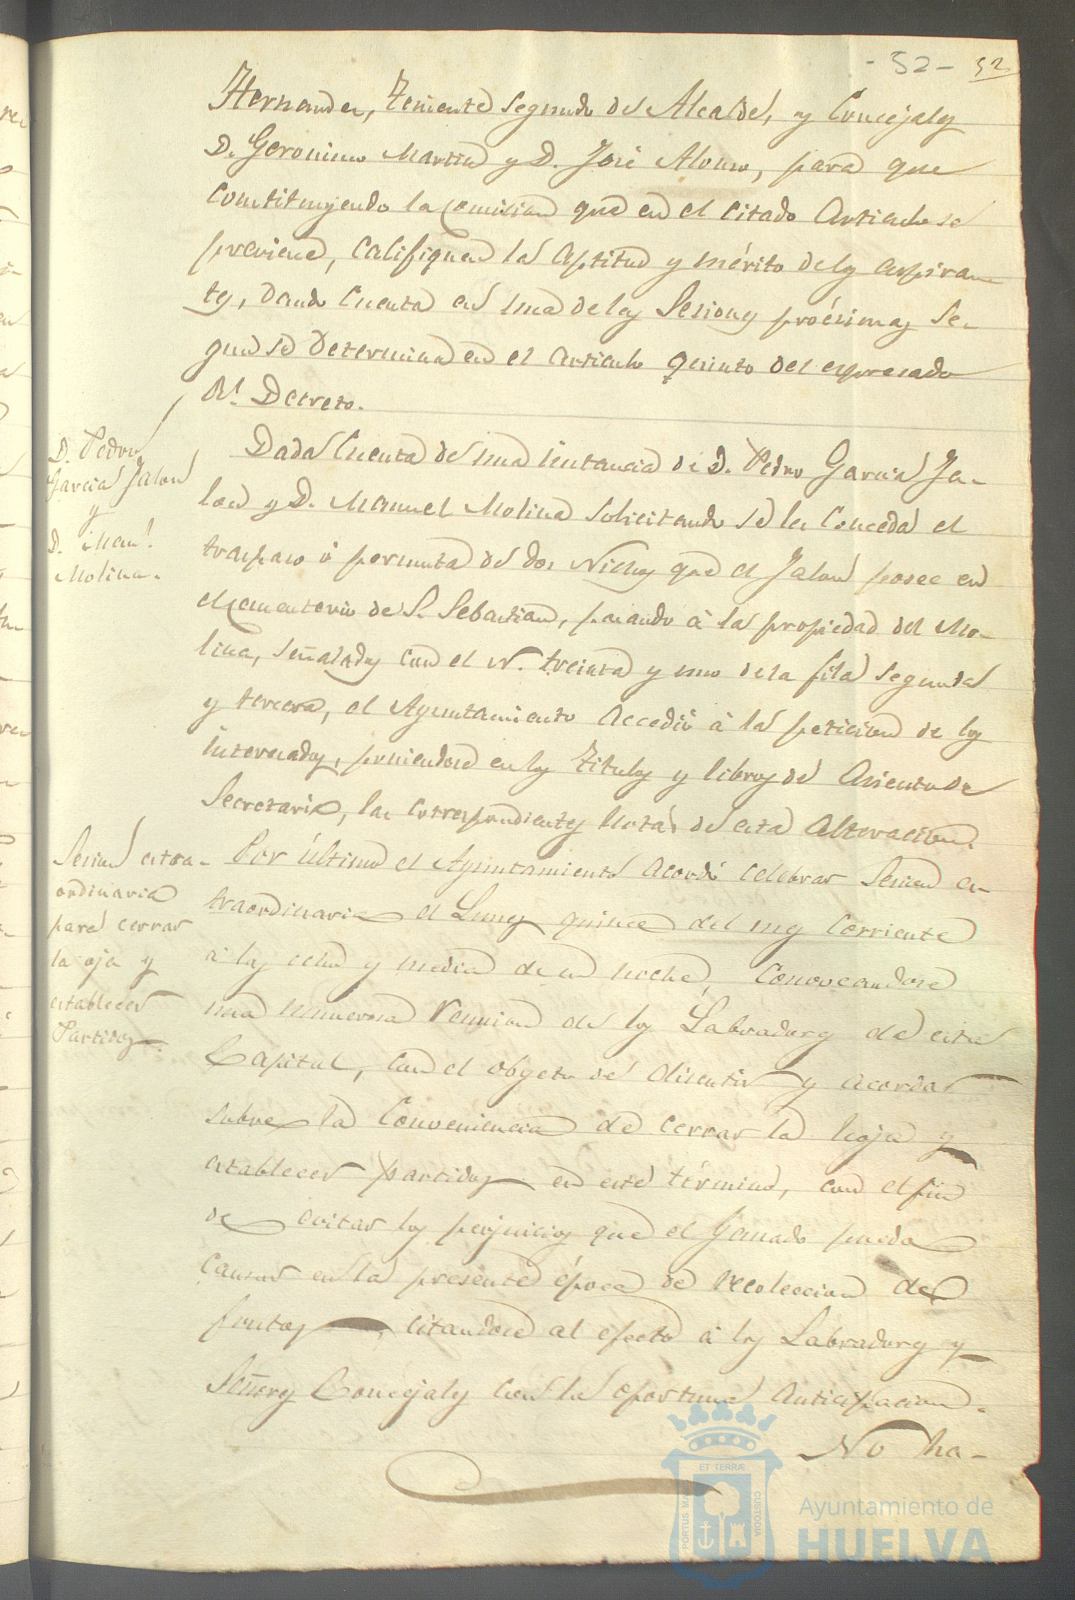 - 52 - 52
Hernandez, Teniente segundo de Alcalde, y Concejales
D. Geronimo Martin y D. José Alonso, para que
constituyendo la comision que en el citado articulo se
previene, califiquen la aptitud y mérito de los aspiran-
tes, dando cuenta en una de las Sesiones procsimas se-
gun se determina en el articulo quinto del espresado
Rl. Decreto.
D. Pedro
Garcia Jalon
y
D. Man.l
Molina.
Dada cuenta de una instancia de D. Pedro Garcia Ja-
lon y D. Manuel Molina solicitando se les conceda el
traspaso ó permuta de dos Nichos que el Jalon posee en
el cementerio de S. Sebastian, pasando á la propiedad del Mo-
lina, señalados con el N. treinta y uno de la fila segunda
y tercera, el Ayuntamiento accedió á la peticion de los
interesados, poniendose en los Titulos y libros de asiento de
Secretaria, las correspondientes notas de esta alteracion.
Sesion estra-
ordinaria
para cerrar
la oja y
establecer
Partidos.
Por último el Ayuntamiento acordó celebrar Sesion es-
traordinaria el Lunes quince del mes corriente
á las ocho y media de su noche, convocandose
una numerosa reunion de los Labradores de esta
Capital, con el objeto de discutir y acordar
sobre la conveniencia de cerrar la hoja y
establecer partidos en este término, con el fin
de evitar los perjuicios que el ganado pueda
causar en la presente época de recoleccion de
frutos, citandose al efecto á los Labradores y
Señores Concejales con la oportuna anticipacion.
No ha-
PORTUS MARIS ET TERRAE CUSTODIA
Ayuntamiento de
HUELVA